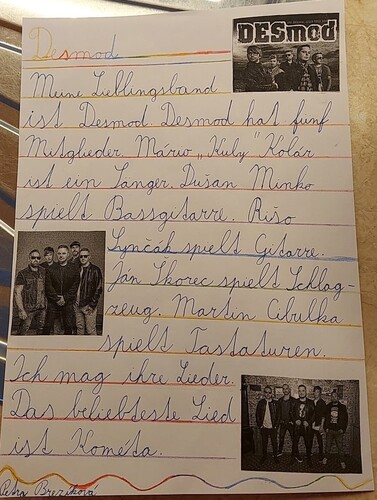 DESmod
Desmod
Meine Lieblingsband
ist Desmod. Desmod hat fünf
Mitglieder. Mário „Kuly" Kolár
ist ein Sänger. Dušan Minko
spielt Bassgitarre. Rišo
Synčák spielt Gitarre.
Ján Škorec spielt Schlag-
zeug. Martin Cibulka
spielt Tastaturen.
Ich mag ihre Lieder.
Das beliebteste Lied
ist Kometa.
Petra Brezíková